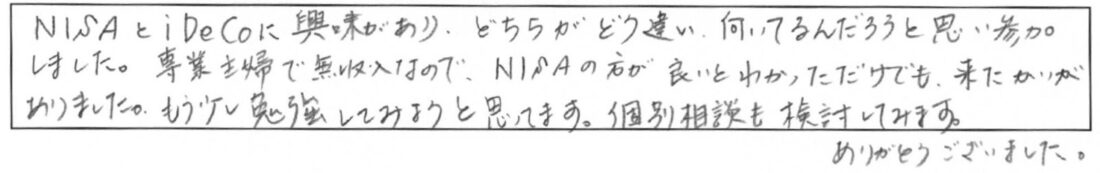 NISAとiDeCoに興味があり、どちらがどう違い、何いってるんだろうと思い参加
しました。専業主婦で無収入なので、NISAの方が良いとわかっただけでも、来たかいが
ありました。もう少し勉強してみようと思ってます。個別相談も検討してみます。
ありがとうございました。